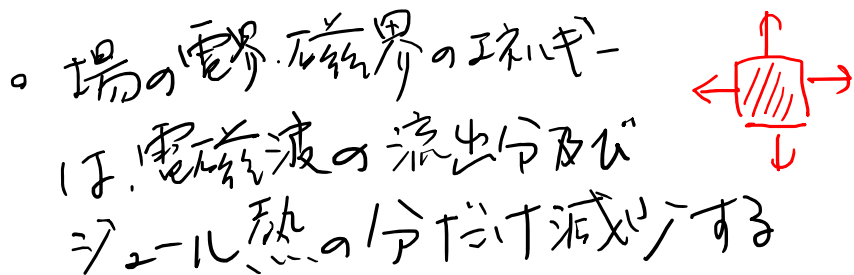 。場の電界・磁界のエネルギー
は、電磁波の流出分及び
ジュール熱の分だけ減少する